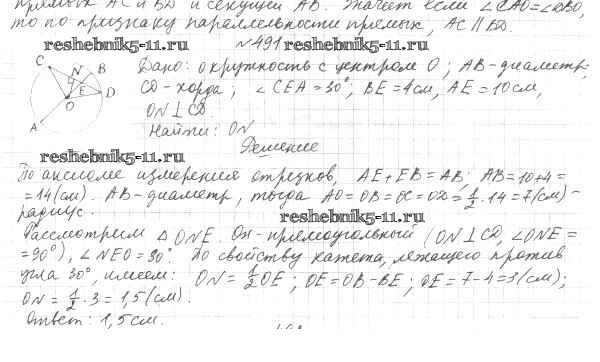 прямых AC и BD и секущей AB. Значит если ∠CAO=∠DBO,
то по признаку параллельности прямых, AC ∥ BD.
reshebnik5-11.ru №491 reshebnik5-11.ru
C N B
Дано: окружность с центром O; AB-диаметр;
4 E D
CD-хорда; ∠CEA=30°; BE=4см, AE=10см,
O
ON⊥CD.
A
Найти: ON
Решение
reshebnik5-11.ru
По аксиоме измерения отрезков, AE+EB=AB; AB=10+4=
=14(см). AB-диаметр, тогда AO=OB=OC=OD=1/2·14=7(см)-
reshebnik5-11.ru
радиус.
Рассмотрим △ONE. Он-прямоугольный (ON⊥CD, ∠ONE=
=90°), ∠NEO=30°. По свойству катета, лежащего против
угла 30°, имеем: ON=1/2OE; OE=OB-BE; OE=7-4=3(см);
ON=1/2·3=1,5(см).
Ответ: 1,5см.